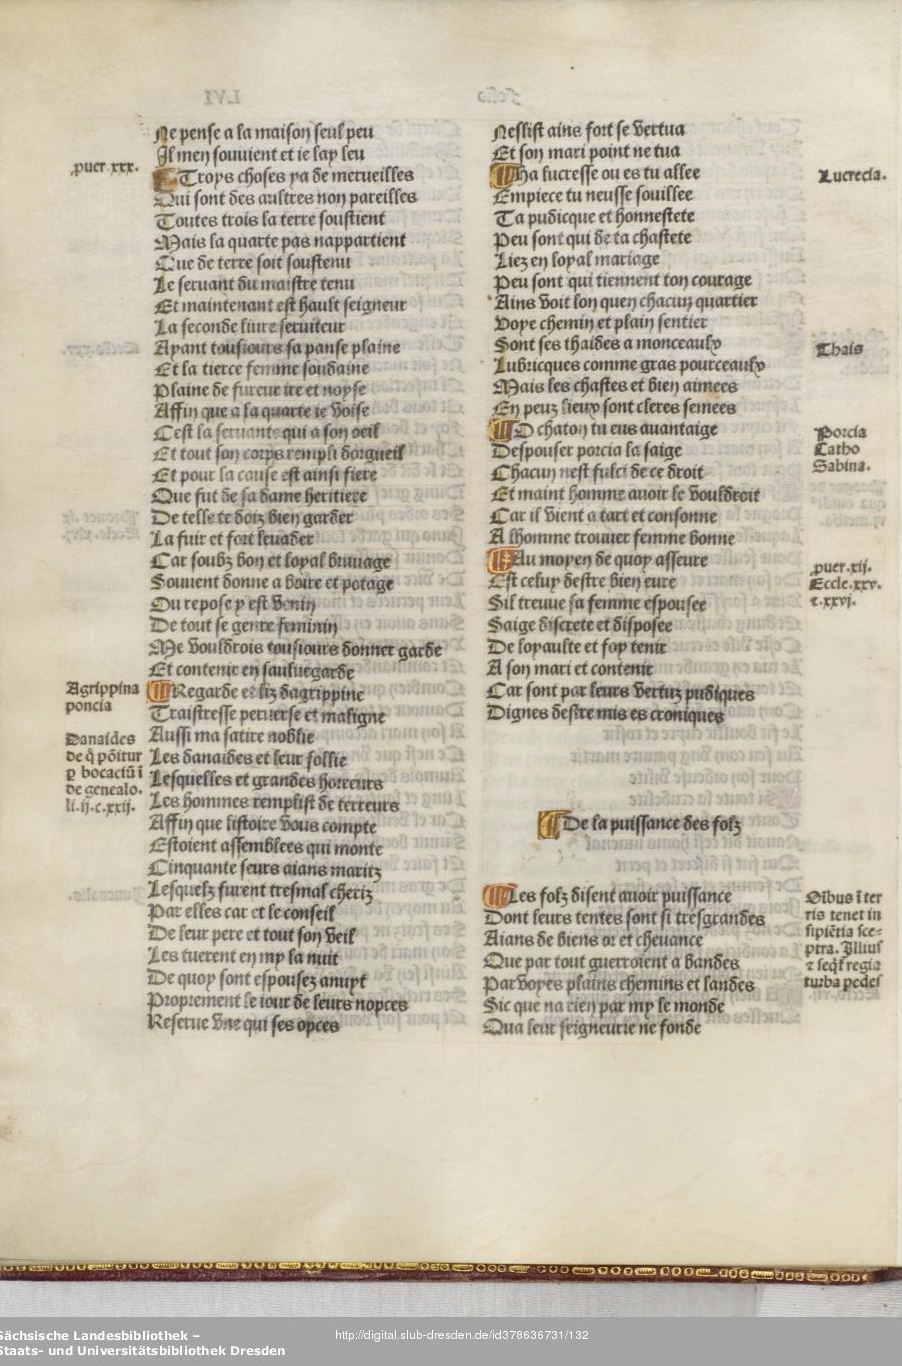 Ne pense a la maison seul peu
Il men souvient et ie lay leu
Troys choses ya de merueilles
Qui sont des aultres non pareilles
Toutes trois la terre soustient
Mais la quarte pas nappartient
Que de terre soit soustenu
Le seruant du maistre tenu
Et maintenant est hault seigneur
La seconde liure seruiteur
Ayant tousiours sa panse plaine
Et la tierce femme soudaine
Plaine de fureur ire et noyse
Affin que a la quarte ie voise
Cest la seruante qui a son oeil
Et tout son corps rempli dorgueil
Et pour la cause est ainsi fiere
Que fut de sa dame heritiere
De telle te doiz bien garder
La fuir et fort leuader
Car soubz bon et loyal bruuage
Souuent donne a boire et potage
Ou repose y est venin
De tout se genre feminin
Me vouldrois tousiours donner garde
Et contenir en sauluegarde
Regarde et liz dagrippine
Traistresse peruerse et maligne
Aussi ma satire noblie
Les danaides et leur follie
Lesquelles et grandes horreurs
Les hommes remplist de terreurs
Affin que listoire vous compte
Estoient assemblees qui monte
Cinquante seurs aians maritz
Lesquelz furent tresmal cheriz
Par elles car et le conseil
De leur pere et tout son veil
Les tuerent en my la nuit
De quoy sont espousez anuyt
Proprement le iour de leurs nopces
Reserue vne qui ses opces
puer.xxx.
Agrippina
poncia
Danaides
de q̃ põitur
p bocaciũ ĩ
de genealo.
li.ij.c.xxij.
Nessist ains fort se vertua
Et son mari point ne tua
Ha lucresse ou es tu allee
Empiece tu neusse souillee
Ta pudicque et honnestete
Peu sont qui de ta chastete
Liez en loyal mariage
Peu sont qui tiennent ton courage
Ains voit lon quen chacun quartier
Voye chemin et plain sentier
Sont ses thaides a monceaulx
Lubricques comme gras pourceaulx
Mais les chastes et bien aimees
En peuz lieux sont cleres semees
O chaton tu eus auantaige
Despouser porcia la saige
Chacun nest fulci de ce droit
Et maint homme auoir le vouldroit
Car il vient a tart et consonne
A lhomme trouuer femme bonne
Au moyen de quoy asseure
Est celuy destre bien eure
Sil treuue sa femme espousee
Saige discrete et disposee
De loyaulte et foy tenir
A son mari et contenir
Car sont par leurs vertuz pudiques
Dignes destre mis es croniques
De la puissance des folz
Les folz disent auoir puissance
Dont leurs tentes sont si tresgrandes
Aians de biens or et cheuance
Que par tout guerroient a bandes
Par voyes plains chemins et landes
Sic que na rien par my le monde
Qua leur seigneurie ne fonde
Lucrecia.
Thais
Porcia
Catho
Sabina.
puer.xij.
Eccle.xxv.
⁊.xxvj.
Oĩbus ĩ ter
ris tenet in
sipiẽtia sce-
ptra. Illius
⁊ seq̃t regia
turba pedes
Folio
LVI
Sächsische Landesbibliothek –
Staats- und Universitätsbibliothek Dresden
http://digital.slub-dresden.de/id378636731/132